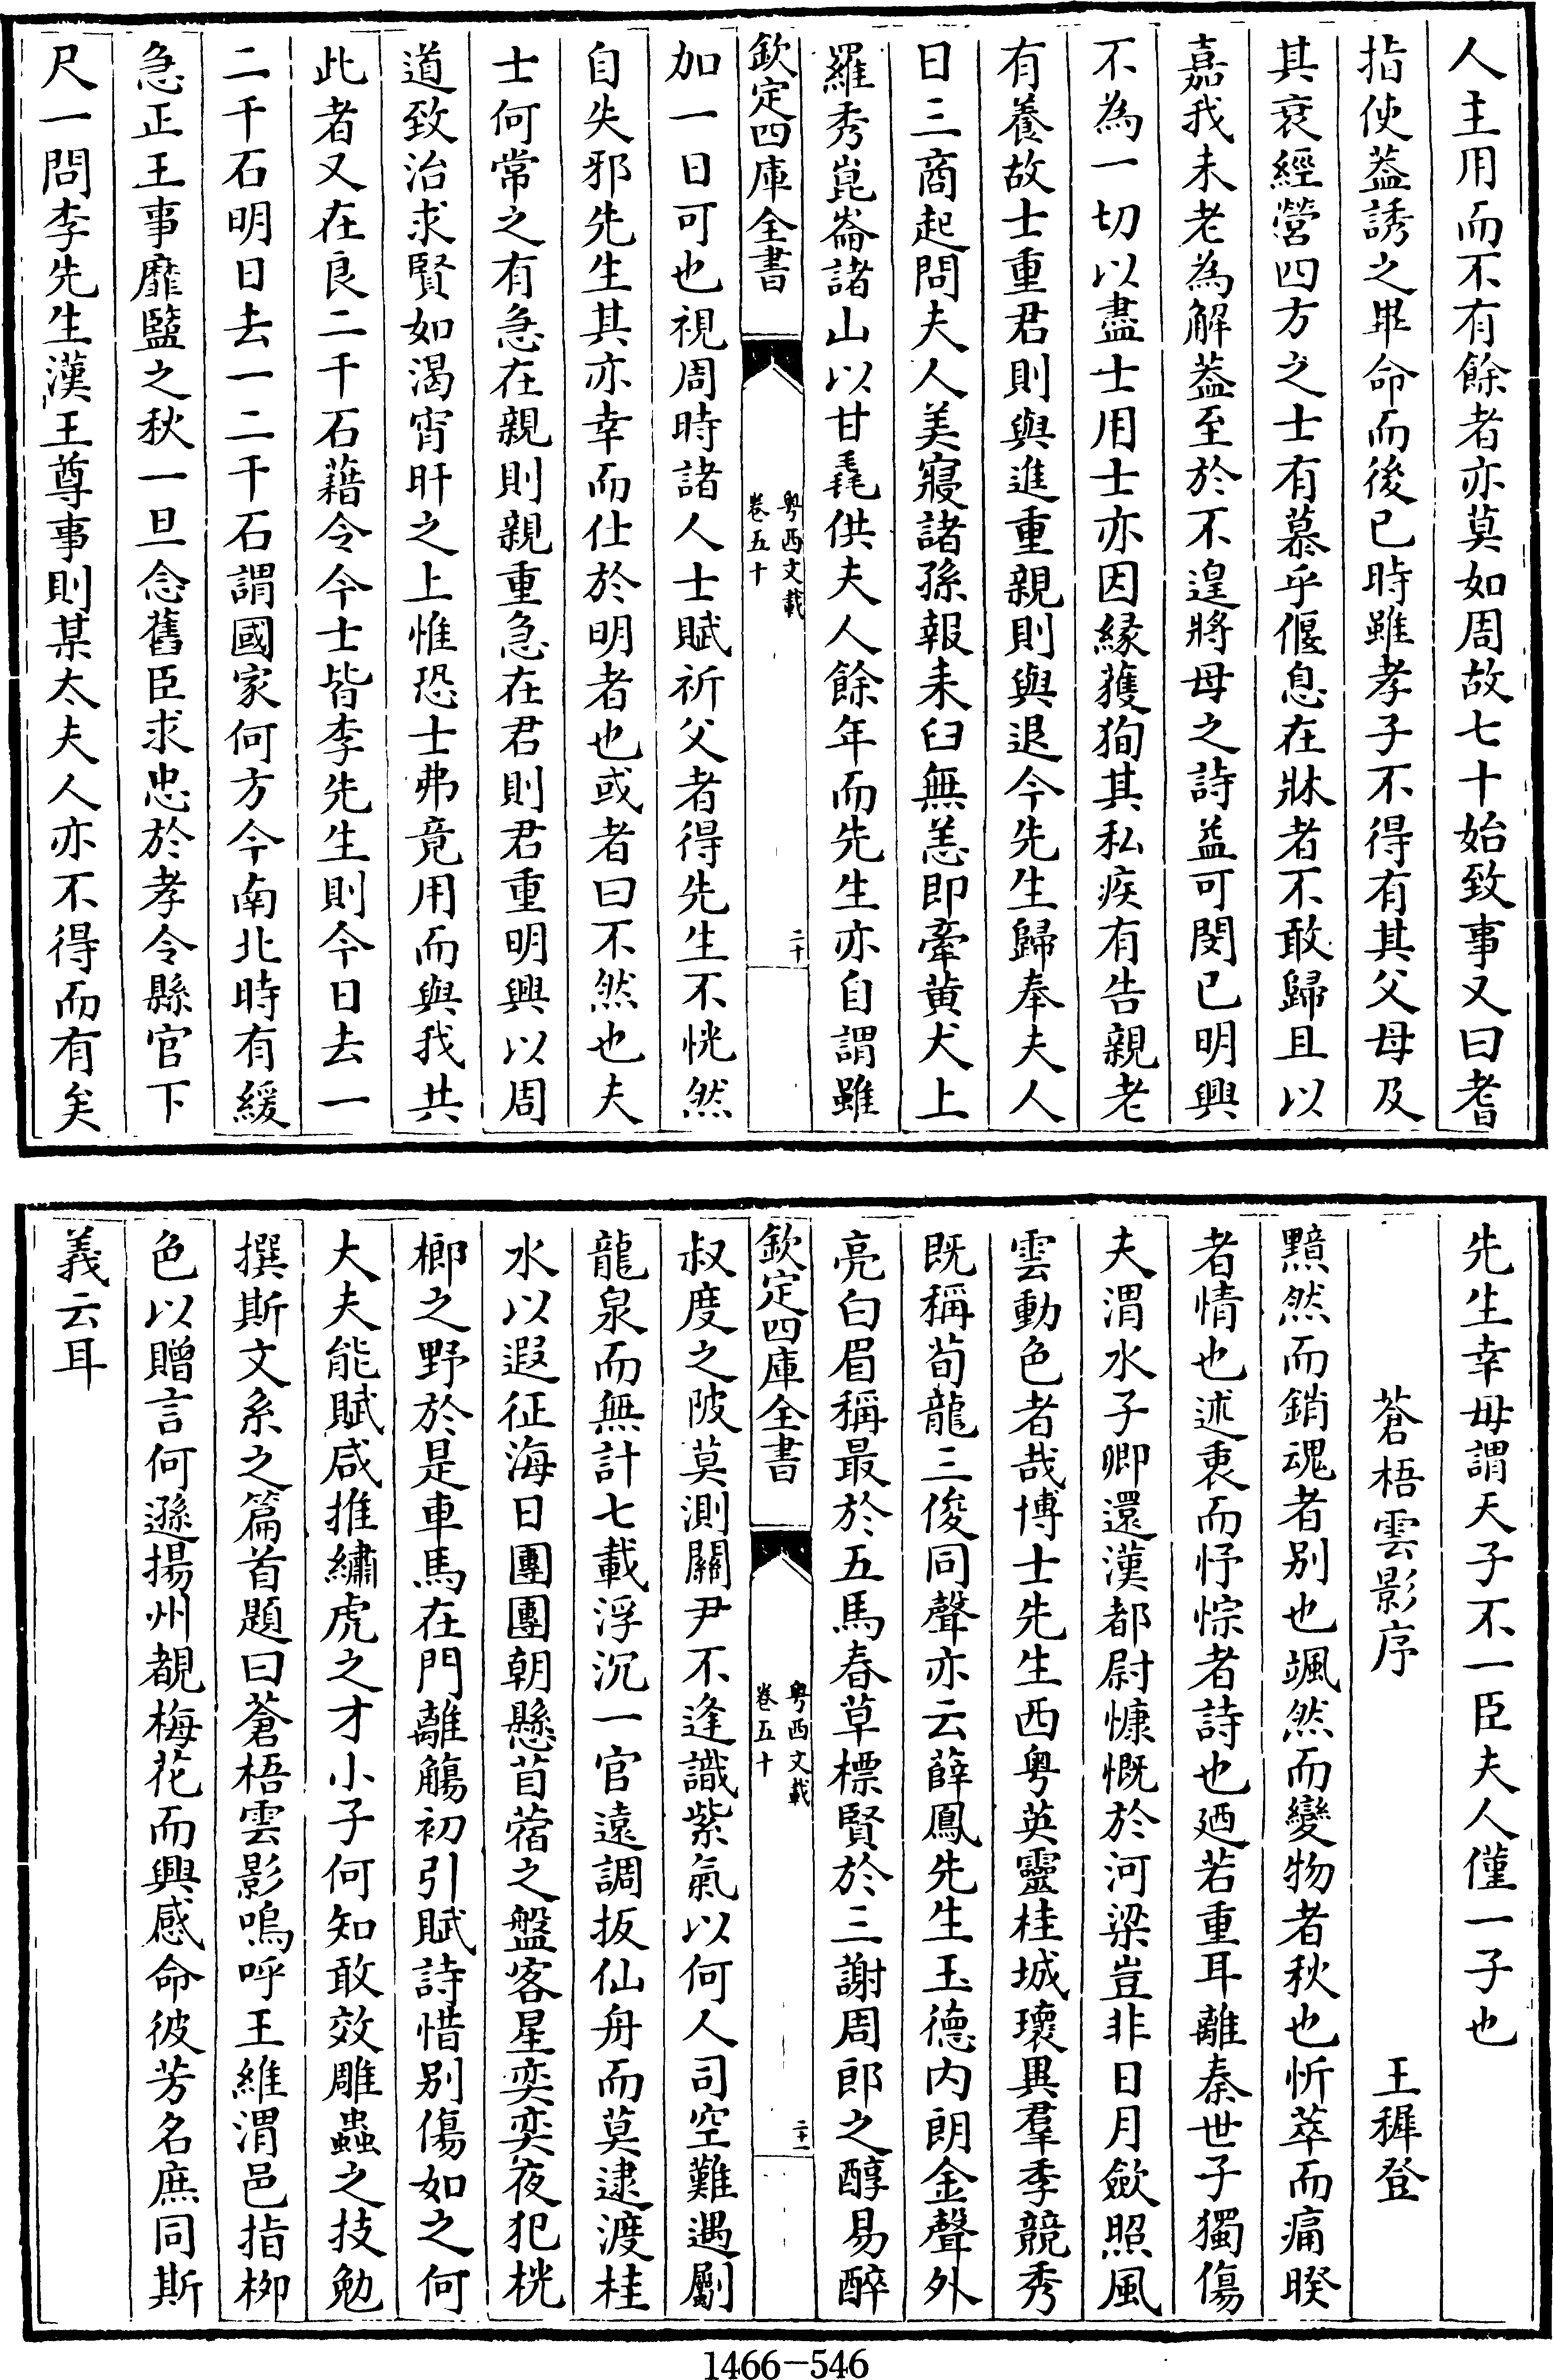 人主用而不有餘者亦莫如周故七十始致事又曰耆
指使葢誘之畢命而後已時雖孝子不得有其父母及
其衰經營四方之士有慕乎偃息在牀者不敢歸且以
嘉我未老為解葢至於不遑將母之詩益可閔已明興
不為一切以盡士用士亦因緣獲狥其私疾有告親老
有養故士重君則與進重親則與退今先生歸奉夫人
日三商起問夫人美寢諸孫報耒臼無恙即牽黄犬上
羅秀崑崙諸山以甘毳供夫人餘年而先生亦自謂雖
欽定四庫全書
粤西文載
卷五十
二十
加一日可也視周時諸人士賦祈父者得先生不恍然
自失邪先生其亦幸而仕於明者也或者曰不然也夫
士何常之有急在親則親重急在君則君重明興以周
道致治求賢如渴宵旰之上惟恐士弗竟用而與我共
此者又在良二千石藉令今士皆李先生則今日去一
二千石明日去一二千石謂國家何方今南北時有緩
急正王事靡盬之秋一旦念舊臣求忠於孝令縣官下
尺一問李先生漢王尊事則某太夫人亦不得而有矣
先生幸毋謂天子不一臣夫人僅一子也
蒼梧雲影序
王穉登
黯然而銷魂者别也颯然而變物者秋也忻萃而痛暌
者情也述衷而抒悰者詩也廼若重耳離秦世子獨傷
夫渭水子卿還漢都尉慷慨於河梁豈非日月歛照風
雲動色者哉博士先生西粤英靈桂城瓌異羣季競秀
既稱荀龍三俊同聲亦云薛鳳先生玉德内朗金聲外
亮白眉稱最於五馬春草標賢於三謝周郎之醇易醉
欽定四庫全書
粤西文載
卷五十
二十一
叔度之陂莫測關尹不逢識紫氣以何人司空難遇劚
龍泉而無計七載浮沉一官遠調扳仙舟而莫逮渡桂
水以遐征海日團團朝懸苜蓿之盤客星奕奕夜犯桄
榔之野於是車馬在門離觴初引賦詩惜别傷如之何
大夫能賦咸推繡虎之才小子何知敢效雕蟲之技勉
撰斯文系之篇首題曰蒼梧雲影嗚呼王維渭邑指栁
色以贈言何遜揚州覩梅花而興感命彼芳名庶同斯
義云耳
1466-546